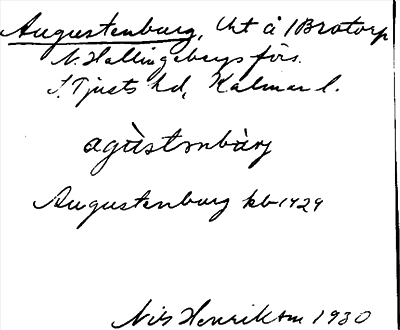 Augustenburg, Uht å /Brotorp
N. Hallingebergs förs.
S. Tjusts hd, Kalmar l.
agùstnbùrj
Augustenburg kb 1729
Nils Henrikson 1930